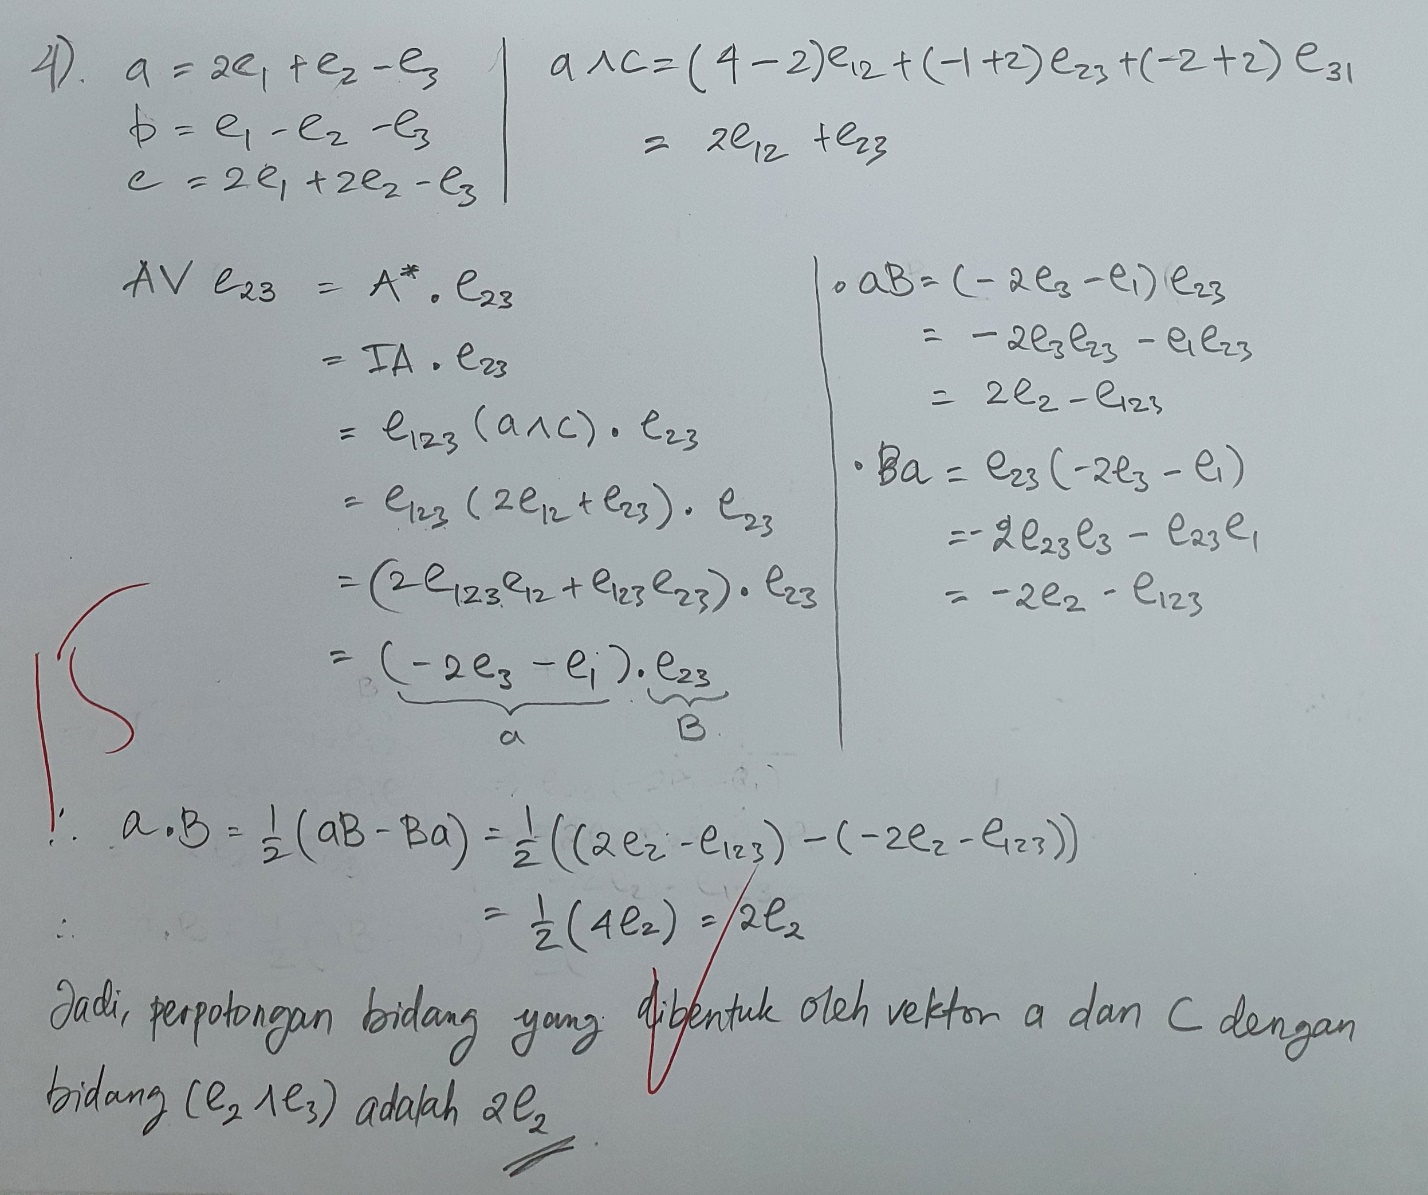 4). a = 2e₁ + e₂ - e₃
b = e₁ - e₂ - e₃
c = 2e₁ + 2e₂ - e₃
a ∧ c = (4 - 2)e₁₂ + (-1 + 2)e₂₃ + (-2 + 2)e₃₁
= 2e₁₂ + e₂₃
A V e₂₃ = A* . e₂₃
= IA . e₂₃
= e₁₂₃ (a∧c) . e₂₃
= e₁₂₃ (2e₁₂ + e₂₃) . e₂₃
= (2e₁₂₃e₁₂ + e₁₂₃e₂₃) . e₂₃
= (-2e₃ - e₁) . e₂₃
a B
• aB = (-2e₃ - e₁) e₂₃
= -2e₃e₂₃ - e₁e₂₃
= 2e₂ - e₁₂₃
• Ba = e₂₃ (-2e₃ - e₁)
= -2e₂₃e₃ - e₂₃e₁
= -2e₂ - e₁₂₃
15
∴ a . B = ½ (aB - Ba) = ½ ((2e₂ - e₁₂₃) - (-2e₂ - e₁₂₃))
= ½ (4e₂) = 2e₂
∴
Jadi, perpotongan bidang yang dibentuk oleh vektor a dan c dengan
bidang (e₂ ∧ e₃) adalah 2e₂